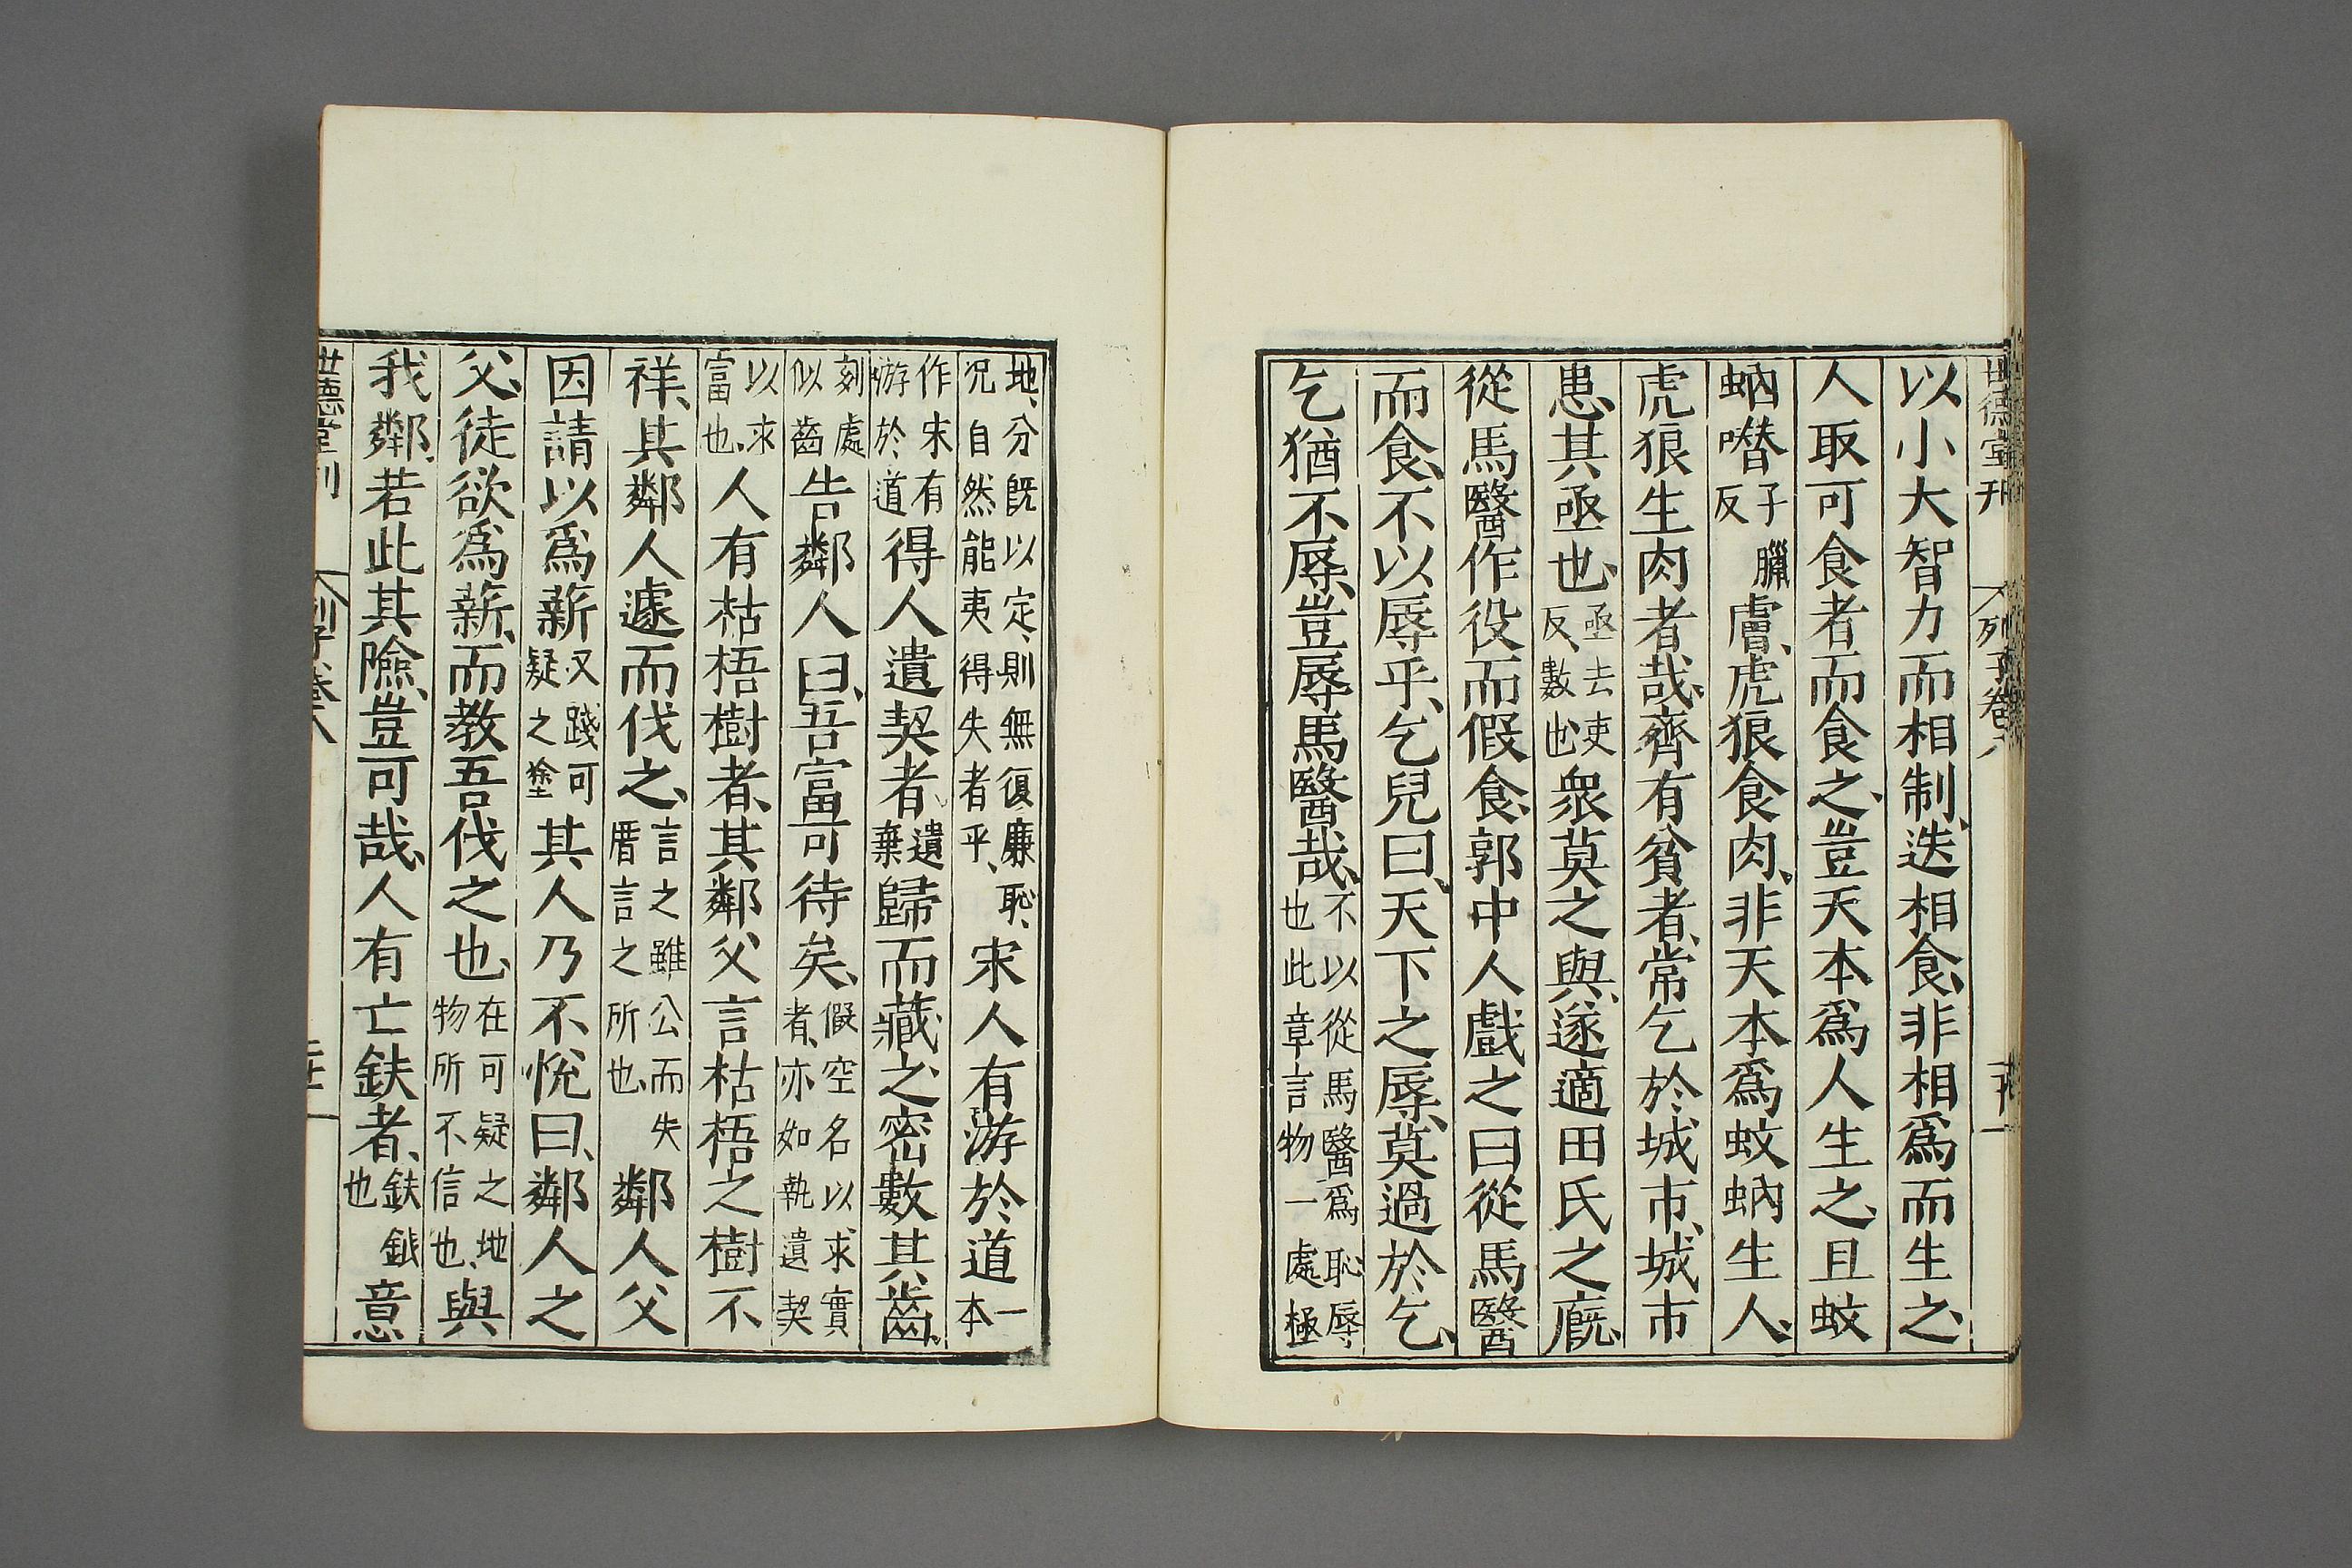 世德堂刊
列子卷八
以小大智力而相制、迭相食、非相爲而生之、
人取可食者而食之、豈天本爲人生之、且蚊
蚋噆子臘反膚、虎狼食肉、非天本爲蚊蚋生人、
虎狼生肉者哉、齊有貧者、常乞於城市、城市
患其亟也、亟去吏反、數也衆莫之與、遂適田氏之廐、
從馬醫作役而假食、郭中人戲之曰從馬醫
而食、不以辱乎、乞兒曰、天下之辱、莫過於乞、
乞猶不辱、豈辱馬醫哉、不以從馬醫爲恥辱也此章言物一處極
地、分旣以定、則無復廉恥、況自然能夷得失者乎、宋人有游於道一本
作宋有游於道得人遺契者、遺棄歸而藏之、密數其齒、
刻處似齒告鄰人曰、吾富可待矣、假空名以求實者、亦如執遺契
以求富也、人有枯梧樹者、其鄰父言枯梧之樹不
祥、其鄰人遽而伐之、言之雖公而失厝言之所也、鄰人父
因請以爲薪又踐可疑之塗其人乃不悅曰、鄰人之
父、徒欲爲薪、而教吾伐之也、在可疑之地、物所不信也、與
我鄰、若此其險、豈可哉、人有亡鈇者、鈇鉞也意
世德堂刊
列子卷八